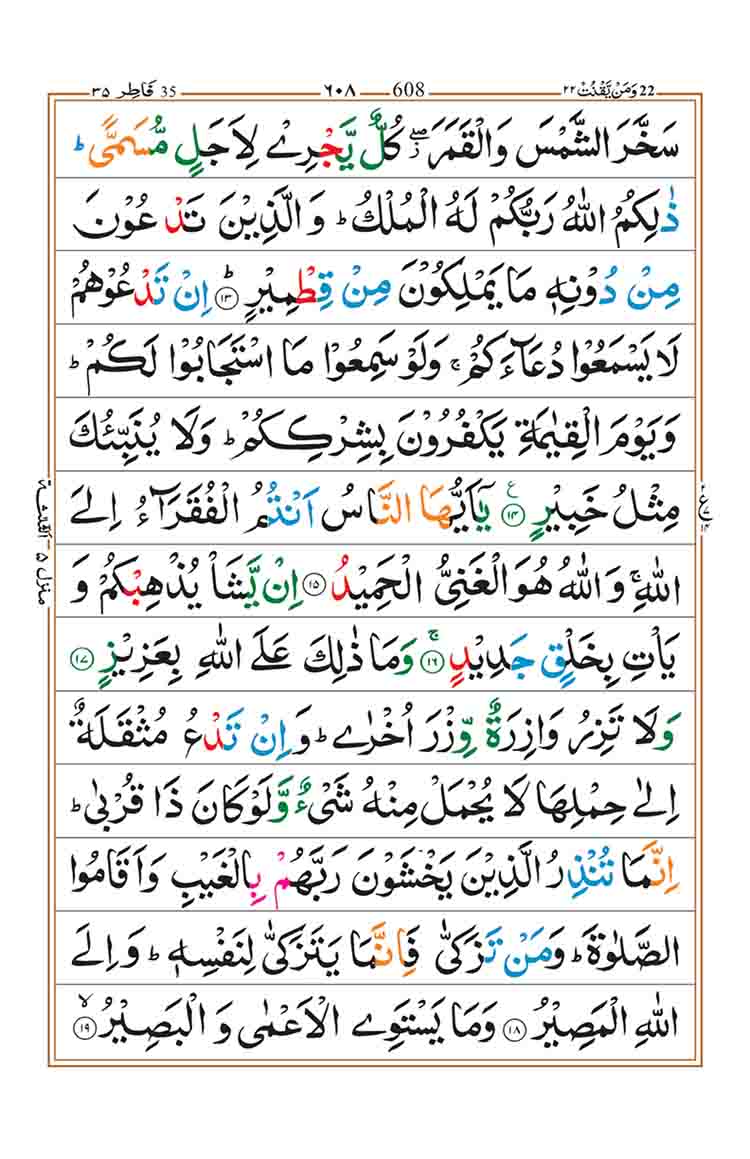 22 وَمَنْ يَّقْنُتْ ٢٢ 608 ٦٠٨ 35 فَاطِر ٣٥
سَخَّرَ الشَّمْسَ وَالْقَمَرَ ۖ٘ كُلٌّ يَّجْرِىْ لِاَجَلٍ مُّسَمًّى ؕ
ذٰلِكُمُ اللّٰهُ رَبُّكُمْ لَهُ الْمُلْكُ ؕ وَ الَّذِيْنَ تَدْعُوْنَ
مِنْ دُوْنِهٖ مَا يَمْلِكُوْنَ مِنْ قِطْمِيْرٍ ؕ ۝۱۳ اِنْ تَدْعُوْهُمْ
لَا يَسْمَعُوْا دُعَآءَكُمْ ۚ وَلَوْ سَمِعُوْا مَا اسْتَجَابُوْا لَكُمْ ؕ
وَيَوْمَ الْقِيٰمَةِ يَكْفُرُوْنَ بِشِرْكِكُمْ ؕ وَلَا يُنَبِّئُكَ
مِثْلُ خَبِيْرٍ ۝۱۴ ع يٰۤاَيُّهَا النَّاسُ اَنْتُمُ الْفُقَرَآءُ اِلَى
اللّٰهِ ۚ وَاللّٰهُ هُوَ الْغَنِىُّ الْحَمِيْدُ ۝۱۵ اِنْ يَّشَاْ يُذْهِبْكُمْ وَ
يَاْتِ بِخَلْقٍ جَدِيْدٍ ۚ ۝۱۶ وَمَا ذٰلِكَ عَلَى اللّٰهِ بِعَزِيْزٍ ۝۱۷
وَلَا تَزِرُ وَازِرَةٌ وِّزْرَ اُخْرٰى ؕ وَاِنْ تَدْعُ مُثْقَلَةٌ
اِلٰى حِمْلِهَا لَا يُحْمَلْ مِنْهُ شَىْءٌ وَّلَوْ كَانَ ذَا قُرْبٰى ؕ
اِنَّمَا تُنْذِرُ الَّذِيْنَ يَخْشَوْنَ رَبَّهُمْ بِالْغَيْبِ وَاَقَامُوا
الصَّلٰوةَ ؕ وَمَنْ تَزَكّٰى فَاِنَّمَا يَتَزَكّٰى لِنَفْسِهٖ ؕ وَاِلَى
اللّٰهِ الْمَصِيْرُ ۝۱۸ وَمَا يَسْتَوِى الْاَعْمٰى وَ الْبَصِيْرُ ۙ ۝۱۹